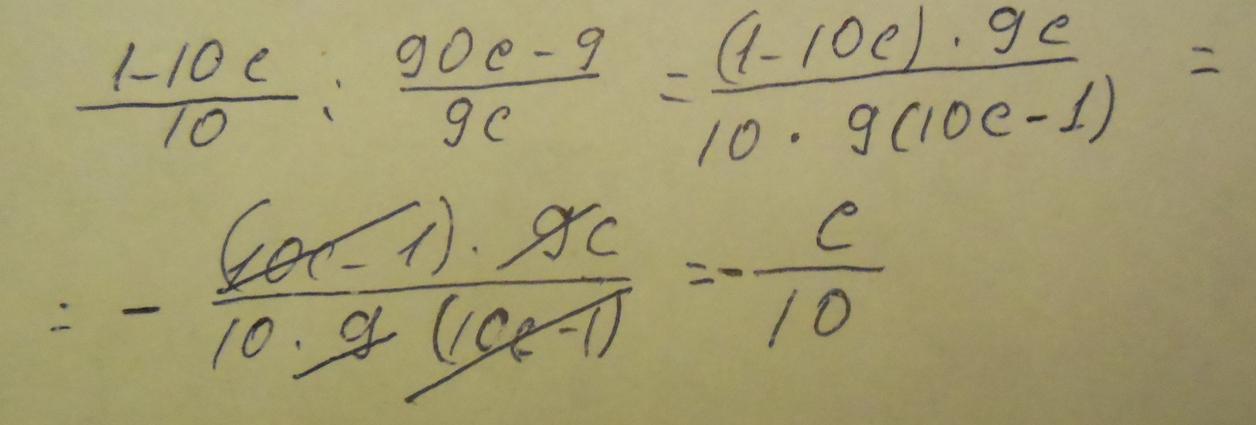 (1-10c)/10 : (90c-9)/(9c) = ((1-10c)·9c)/(10·9(10c-1)) =
= - ((10c-1)·9c)/(10·9(10c-1)) = - c/10